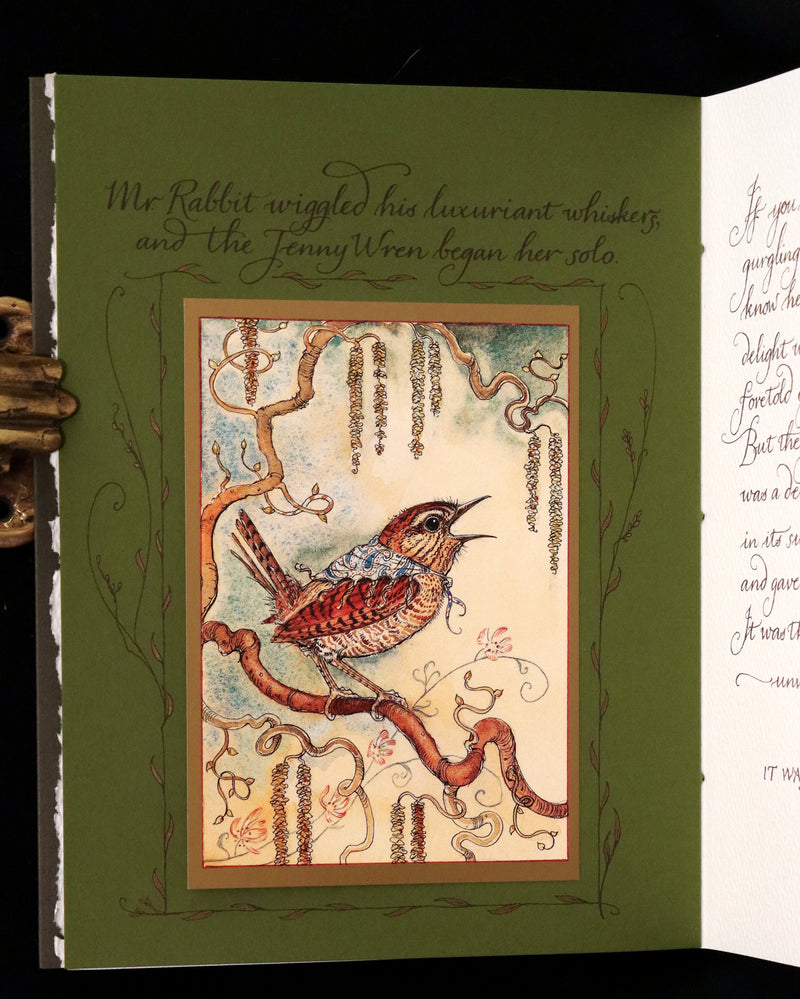 Mr. Rabbit wiggled his luxuriant whiskers,
and the Jenny Wren began her solo.
If you
gurgling
know he
delight w
foretold
But the
was a de
in its su
and gave
It was th
IT WA